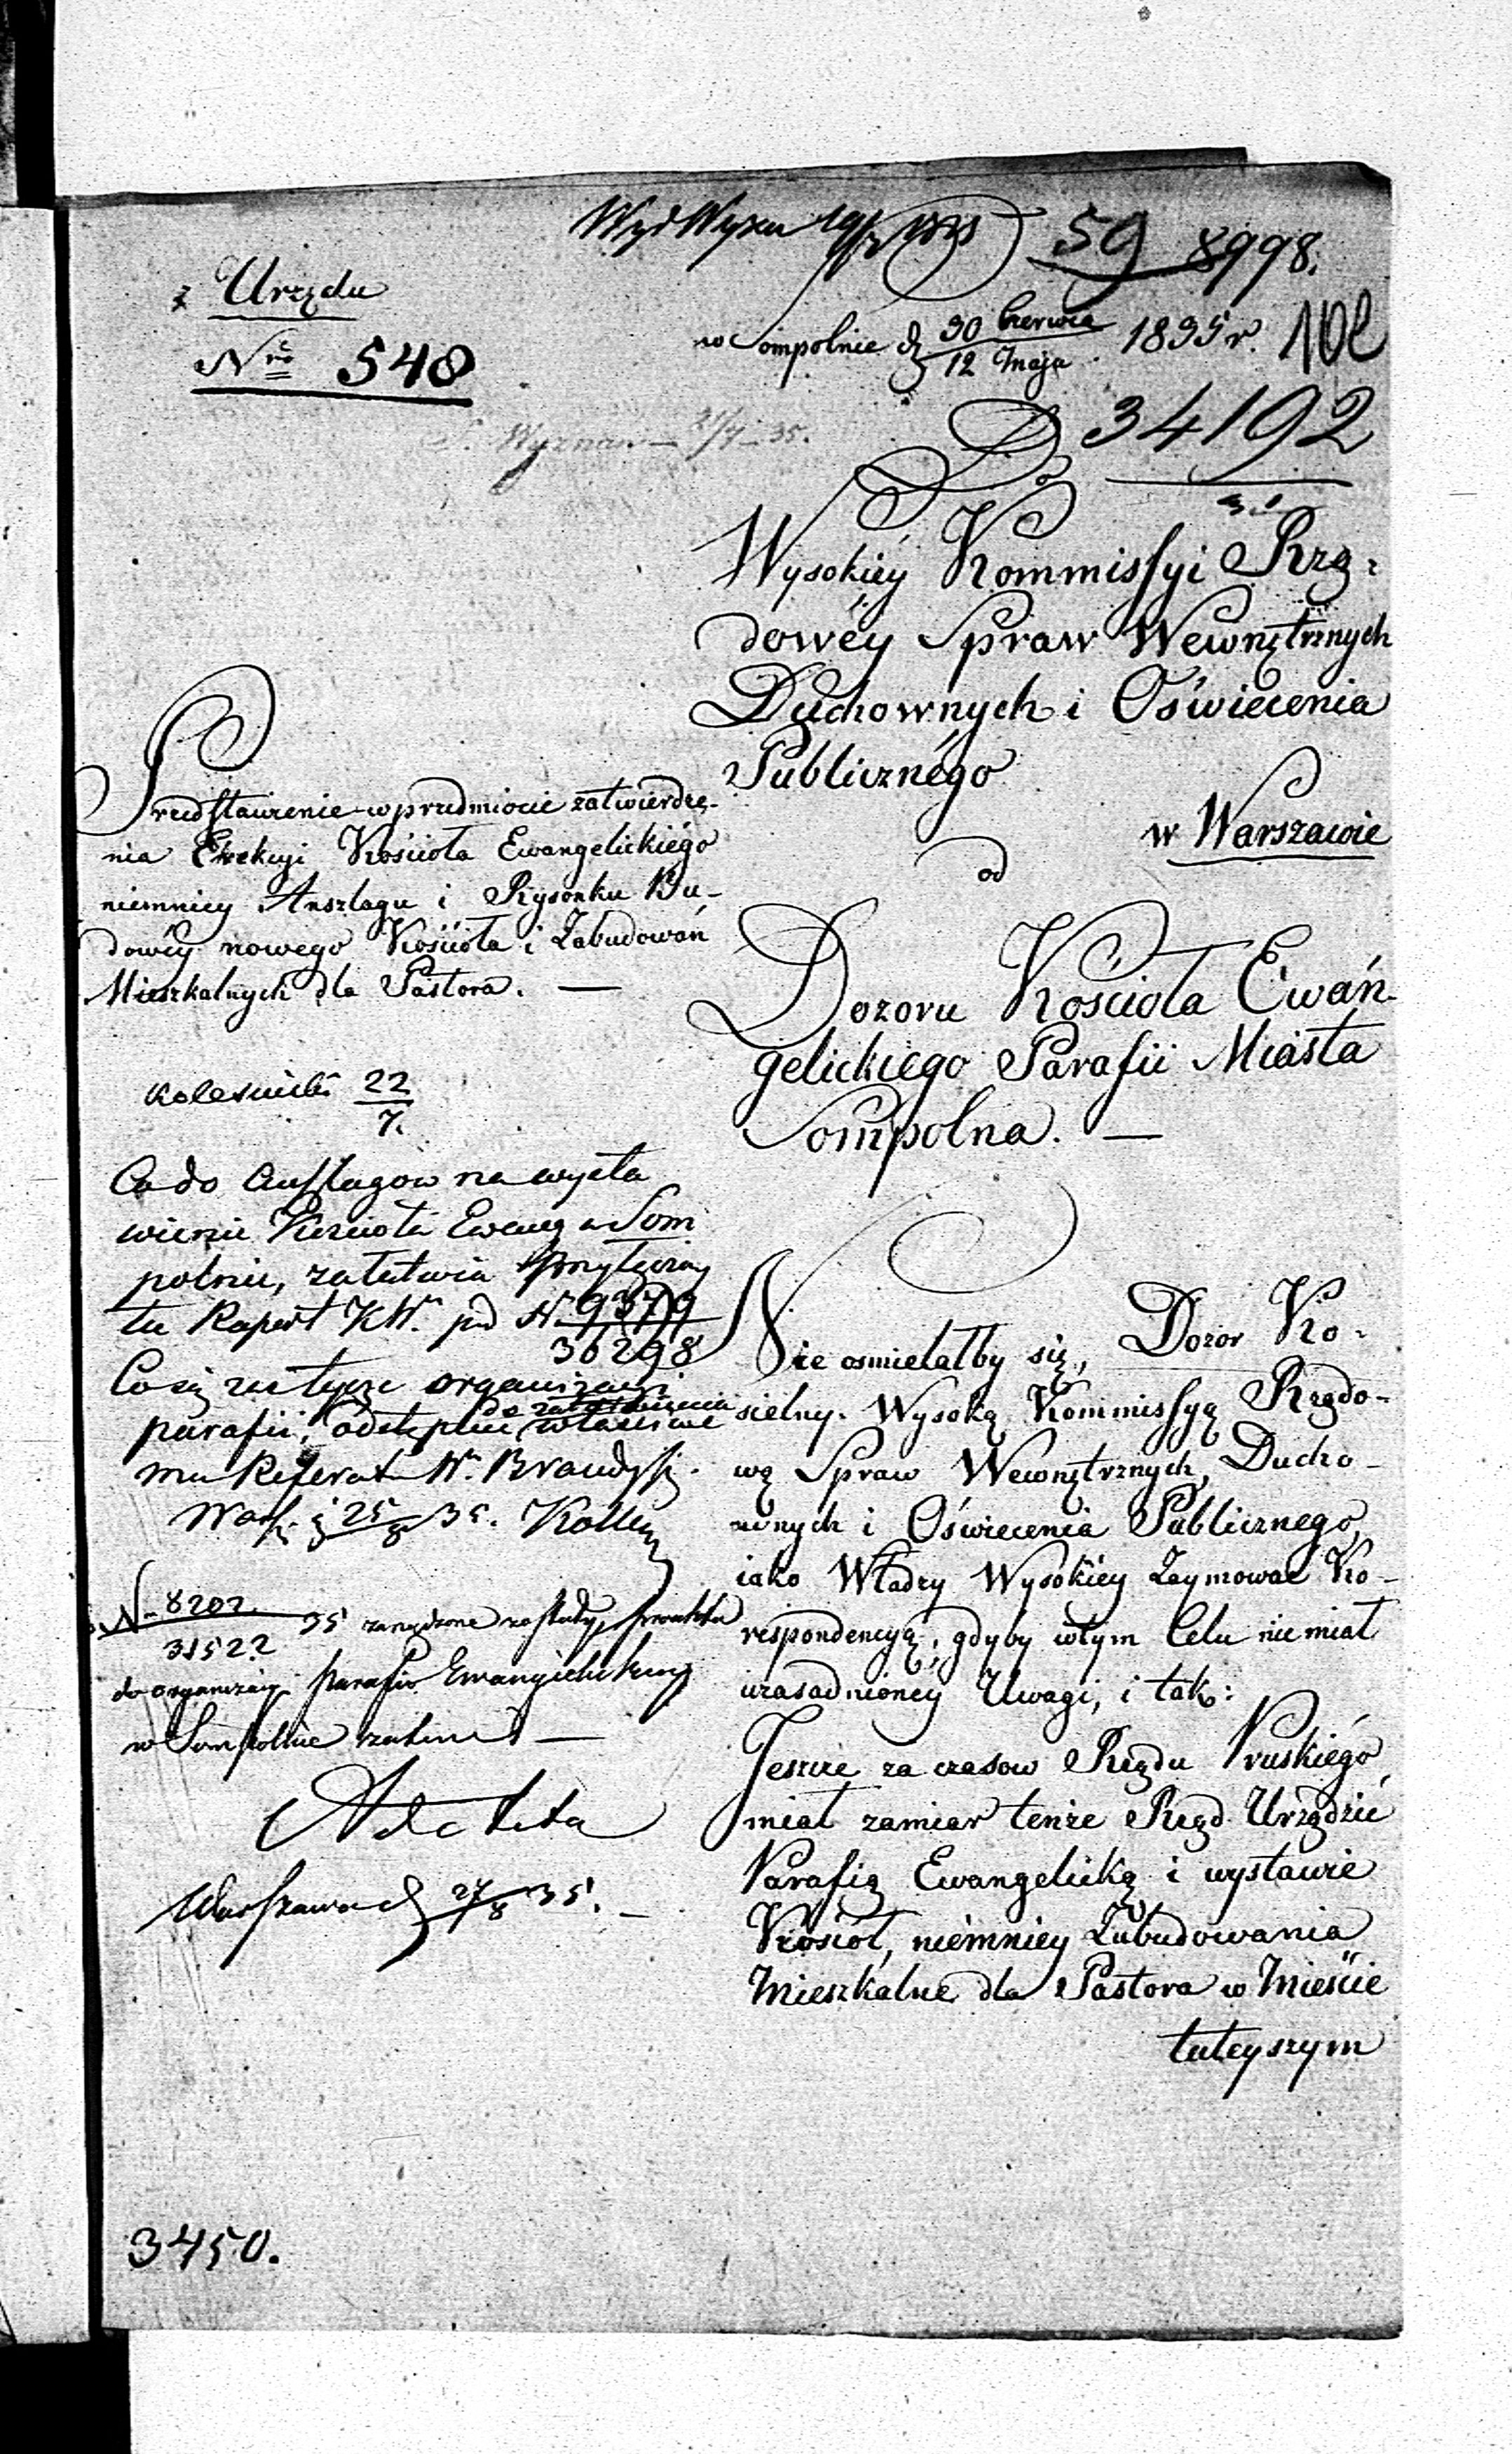 59 8998.
z Urzędu
Nro 548
w Sompolnie d 30 Czerwca 1835 r. 102
12 Maja
Wyznan — 21/7 — 35.
34192
Do
Wysokiéy Kommissyi Rzą-
dowéy Spraw Wewnętrznych
Duchownych i Oświecenia
Publicznégo
w Warszawie
od
Dozoru Kościoła Ewán-
gelickiego Parafii Miasta
Sompolna. —
Przedstawienie w przedmiocie zatwierdze-
nia Erekcyi Kościoła Ewangelickiégo
niemniey Anszlagu i Rysonku Bu-
dowéy nowego Kościoła i Zabudowań
Mieszkalnych dla Pastora. —
22
7.
Co do Anszlagow na wysta
wienie Kościoła Ewang w Som
polnie, załatwia
tu Raport KW. pod N. 9379
36298
Co się zaś tycze organizacyi
parafii, odstępuie do załatwienia właściwe
mu Referatu W. Brandysz.
Warsz. d 25/8 35.
N. 8202
31522 35 zarządzone zostały
do organizacyi parafii Ewangielickiey
w Sompolnie zatem —
Ad Acta
Warszawa d 27/8 35. —
Nie osmielałby się, Dozor Ko-
sielny. Wysoką Kommissyą Rządo-
wą Spraw Wewnętrznych, Ducho-
wnych i Oświecenia Publicznego,
iako Władzy Wysokiey Zaymować Ko-
respondencyą, gdyby w tym Celu nie miał
uzasadnioney Uwagi, i tak:
Jeszcze za czasow Rządu Pruskiégo,
miał zamiar tenże Rząd Urządzić
Parafią Ewangelicką i wystawić
Kościoł, niemniey Zabudowania
Mieszkalne dla Pastora w Mieście
tuteyszym
3450.